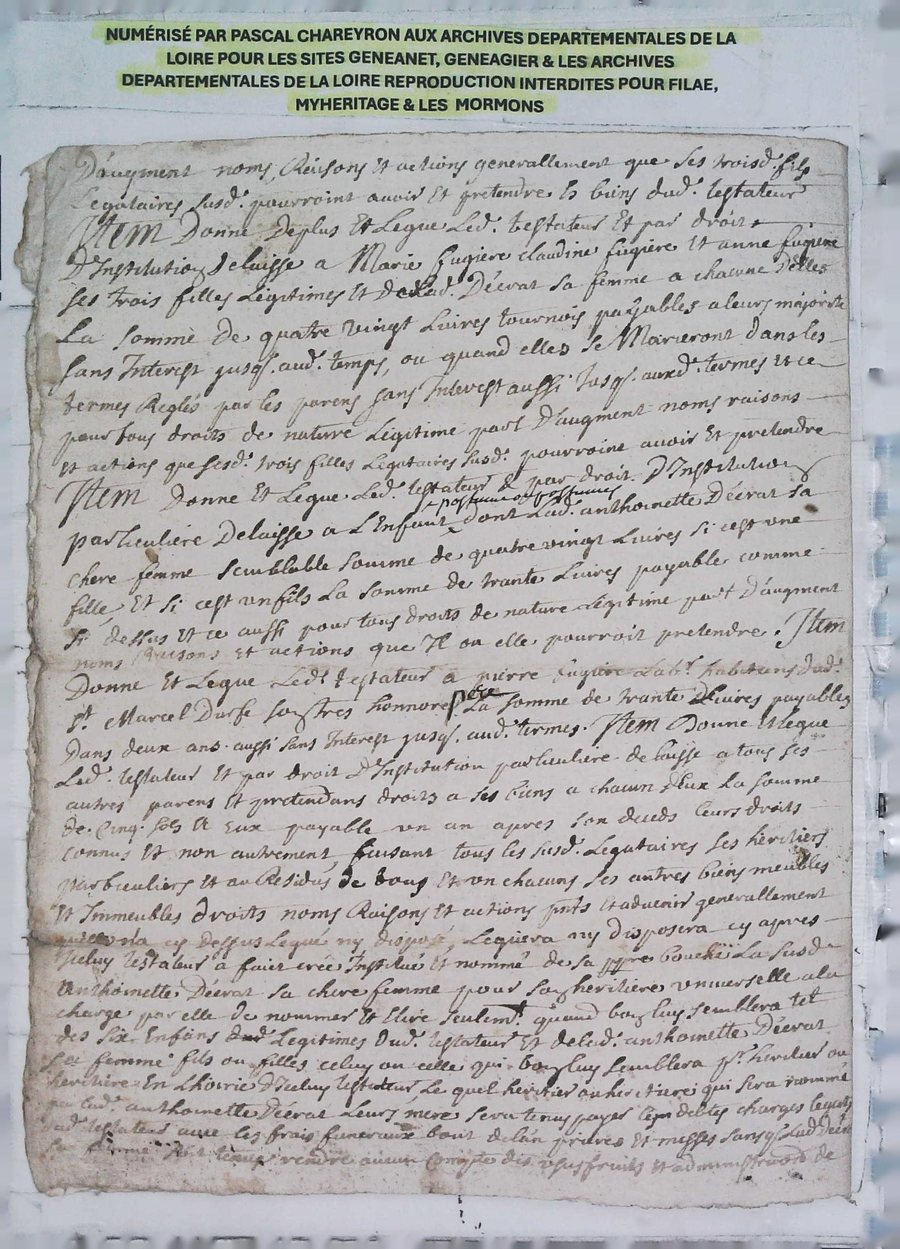 NUMÉRISÉ PAR PASCAL CHAREYRON AUX ARCHIVES DEPARTEMENTALES DE LA
LOIRE POUR LES SITES GENEANET, GENEAGIER & LES ARCHIVES
DEPARTEMENTALES DE LA LOIRE REPRODUCTION INTERDITES POUR FILAE,
MYHERITAGE & LES MORMONS
D'augment noms Raisons Et actions generallement que ses troisd. fils
Legataires susd. pourroint avoir Et pretendre Es biens dud. testateur
Item Donne Deplus Et Legue Led. testateur Et par droit
D'Institution Delaisse a Marie fugiere claudine fugiere Et anne fugiere
ses trois filles Legitimes Et de Lad. Décrat sa femme a chacune D'elles
La somme de quatre vingt Livres tournois payables a leurs majorité
sans Interest jusq. aud. temps, ou quand elles se Marieront Dans les
termes Reglés par les parens sans Interest aussi Jusq. auxd. termes Et ce
pour tous droits de nature Legitime part D'augment noms raisons
Et actions que sesd. trois filles Legataires susd. pourroint avoir Et pretendre
Item Donne Et Legue Led. testateur & par droit D'Institution
particuliere Delaisse a L'Enfant dont Lad. anthoinette Décrat sa
chere femme semblable somme de quatre vingt Livres si cest une
fille, Et si cest un fils La somme de trante Livres payable comme
si dessus Et ce aussi pour tous droits de nature Legitime part D'augment
noms Raisons et actions que Il ou elle pourroit pretendre. Item
Donne Et Legue Led. testateur a pierre fugiere habitans dud.
St. Marcel Durfe son tres honnoré père La somme de trante Livres payables
Dans deux ans aussi sans Interest jusq. aud. termes. Item Donne Et Legue
Led. testateur Et par droit D'Institution particuliere delaisse a tous ses
autres parens Et pretendans droits a ses biens a chacun D'eux La somme
de Cinq sols payable un an apres son deceds Leurs droits
connus Et non autrement, faisant tous les susd. Legataires ses heritiers
particuliers Et au Residus de tous Et un chacuns ses autres biens meubles
Et Immeubles droits noms Raisons Et actions pnts Et advenir generallement
n'a cy dessus Legué ny disposé, Leguera ny disposera cy apres
Iceluy testateur a fait crée Institué Et nommé de sa ppre bouche La susd.
Anthoinette Décrat sa chere femme pour son heritiere universelle a la
charge par elle de nommer Et Elire seulemt. quand bon luy semblera
des six Enfans Legitimes dud. testateur Et de lad. anthoinette Décrat
sa femme fils ou filles celuy ou celle qui bon luy semblera pr. heritier ou
heritiere En L'hoirie D'iceluy testateur, Le quel heritier ou heritiere qui sera nommé
par lad. anthoinette Décrat Leurs mere sera tenus payer debtes charges legats
dud. testateur avec les frais funeraux prieres Et messes sans q. Lad. Décrat
sa femme soit tenue rendre aucun Compte des usufruits Et administraon de